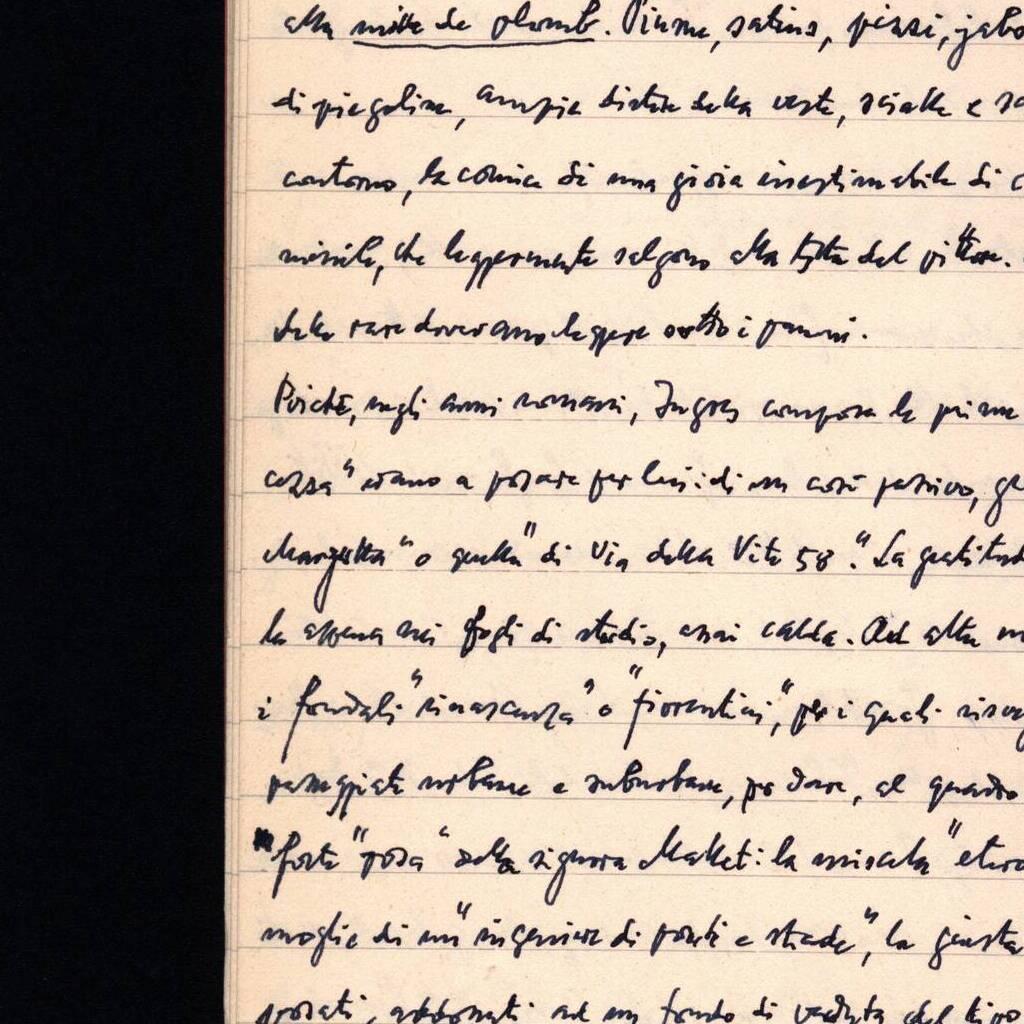 alla mine de plomb. Piume, satins, pizzi, jabo
di piegoline, ampie distese della veste, scialle e
contorno, la cornice di una gioia inestimabile di
minile, che leggermente salgono alla testa del pittore.
delle rare dovevano leggere sotto i panni.
Poiché, negli anni romani, Ingres compose le prime
cozza" erano a posare per lui: di un così
Margutta" o quella" di Via della Vite 58". La gratitud
la appena nei fogli di studio, assai calda. Ad altre
i fondali "rinascenza" o "fiorentini", per i quali
passeggiate urbane e suburbane, per dare, al quadro
"forte" posa" della signora Mallet: la miscela "
moglie di un "ingeniere di ponti e strade", la giusta
posati, abbonati ad un fondo di veduta del tipo